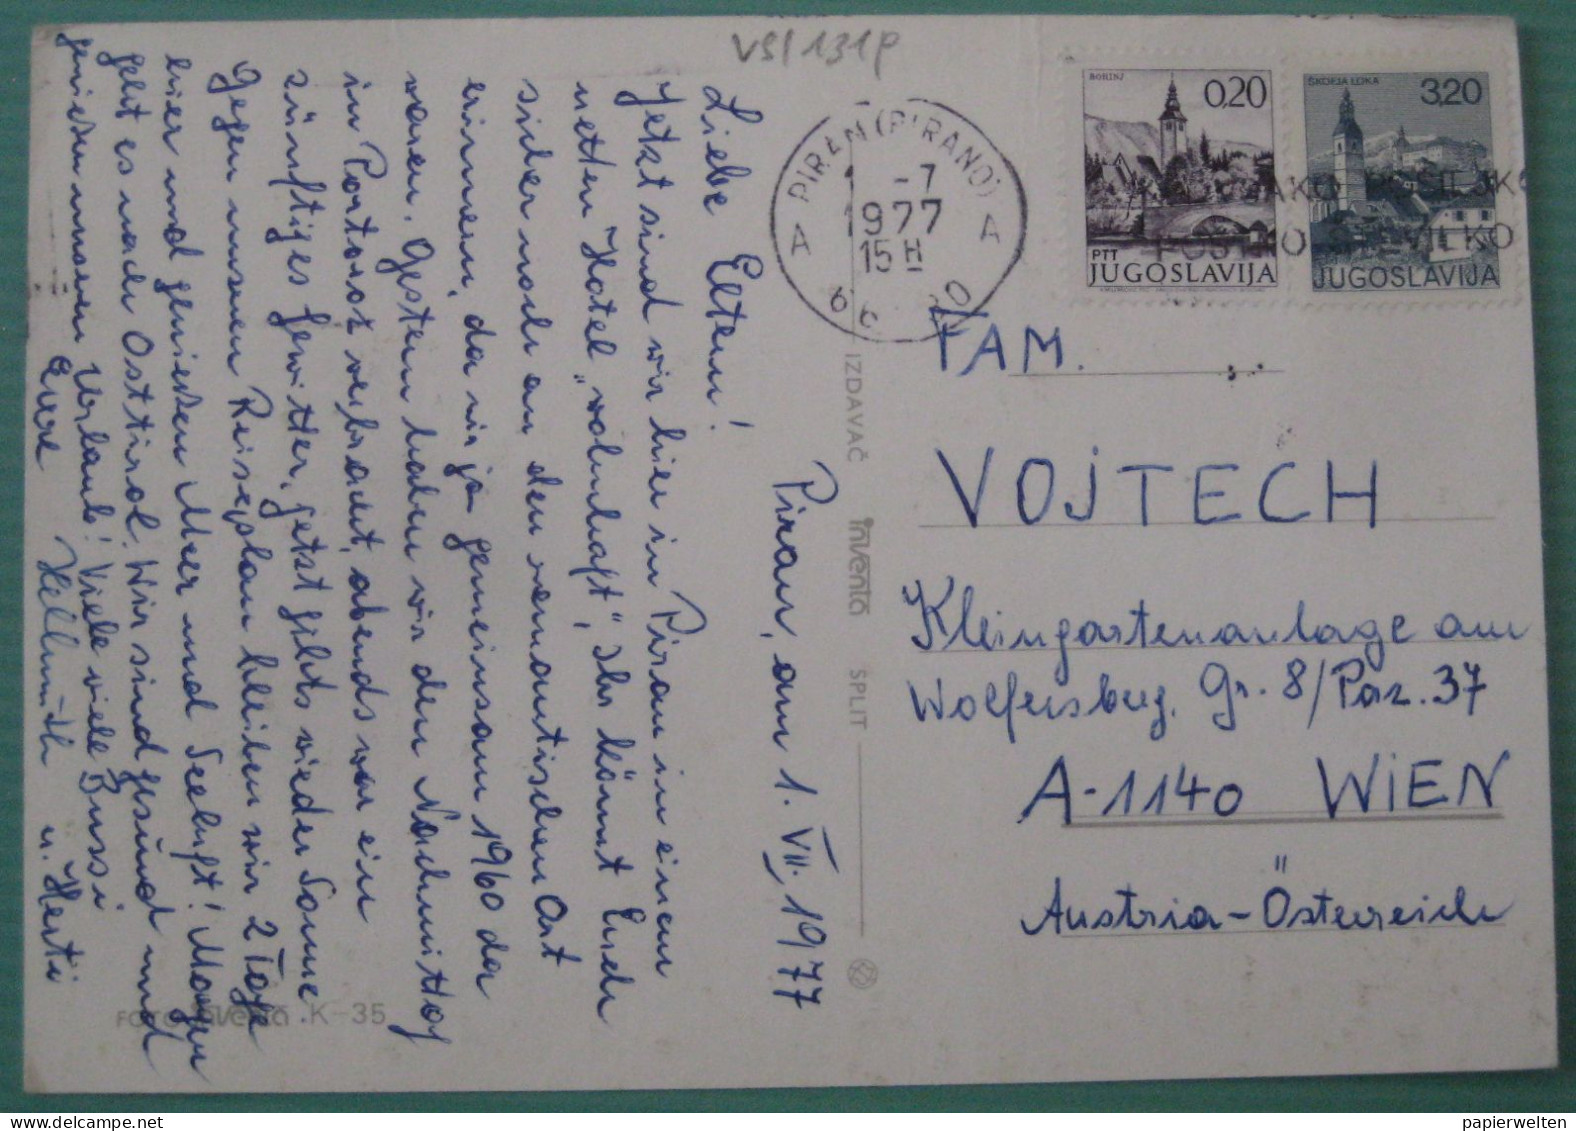 VS/131p
Piran, am 1. VII. 1977
Liebe Eltern!
Jetzt sind wir hier in Piran in einem
netten Hotel „wohnhaft", Ihr könnt Euch
sicher noch an den romantischen Ort
erinnern, da wir ja gemeinsam 1960 da
waren. Gestern haben wir den Nachmittag
in Portoroz verbracht, abends war ein
zünftiges Gewitter, jetzt gibts wieder Sonne
Gegen unseren Reiseplan bleiben wir 2 Tage
hier und genießen Meer und Seeluft! Morgen
geht es nach Osttirol. Wir sind gesund und
genießen unseren Urlaub! Viele viele Bussi
Eure Hellmuth u. Herti
FOTO inventa K-35
IZDAVAČ inventa SPLIT
PIRAN (PIRANO)
-7
1977
15 H
A A
BOHINJ
0,20
PTT
JUGOSLAVIJA
ŠKOFJA LOKA
3,20
JUGOSLAVIJA
FAM.
VOJTECH
Kleingartenanlage am
Wolfersberg, Gr. 8/Paz. 37
A-1140 WIEN
Austria-Österreich
papierwelten